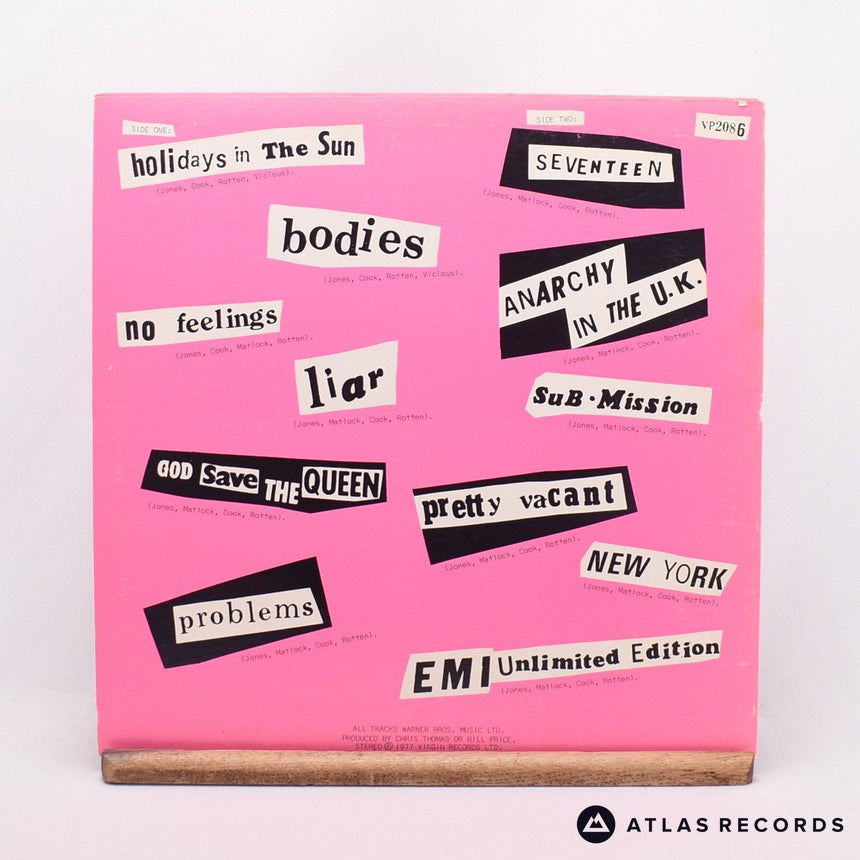 SIDE ONE:
holidays in The Sun
(Jones, Cook, Rotten, Vicious).
bodies
(Jones, Cook, Rotten, Vicious).
no feelings
(Jones, Cook, Matlock, Rotten).
liar
(Jones, Matlock, Cook, Rotten).
GOD Save THE QUEEN
(Jones, Matlock, Cook, Rotten).
problems
(Jones, Matlock, Cook, Rotten).
SIDE TWO:
VP2086
SEVENTEEN
(Jones, Matlock, Cook, Rotten).
ANARCHY
IN THE U.K.
(Jones, Matlock, Cook, Rotten).
SuB·Mission
(Jones, Matlock, Cook, Rotten).
pretty vacant
(Jones, Matlock, Cook, Rotten).
NEW YORK
(Jones, Matlock, Cook, Rotten).
EMI Unlimited Edition
(Jones, Matlock, Cook, Rotten).
ALL TRACKS WARNER BROS. MUSIC LTD.
PRODUCED BY CHRIS THOMAS OR BILL PRICE.
STEREO Ⓟ 1977 VIRGIN RECORDS LTD.
ATLAS RECORDS